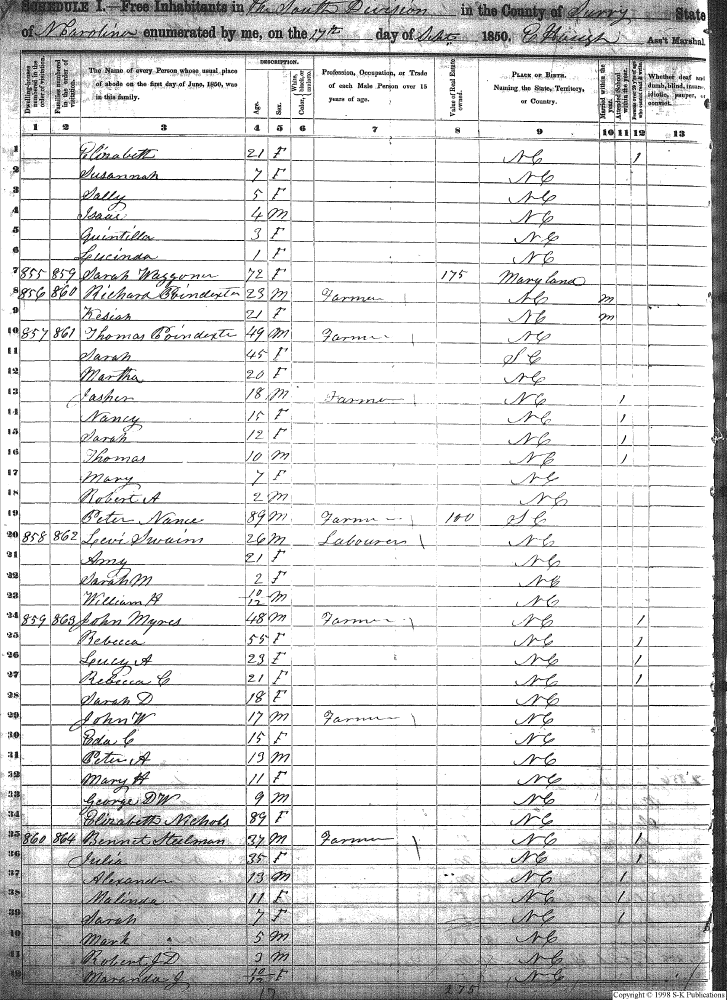 SCHEDULE I.—Free Inhabitants in the South Division in the County of Surry State
of N Carolina enumerated by me, on the 17th day of Sept 1850. Ass't Marshal
DESCRIPTION.
Dwelling-houses numbered in the order of visitation.
Families numbered in the order of visitation.
The Name of every Person whose usual place of abode on the first day of June, 1850, was in this family.
Age.
Sex.
White, black, or mulatto.
Color,
Profession, Occupation, or Trade of each Male Person over 15 years of age.
Value of Real Estate owned.
PLACE OF BIRTH. Naming the State, Territory, or Country.
Married within the year.
Attended School within the year.
Persons over 20 y'rs of age who cannot read & write.
Whether deaf and dumb, blind, insane, idiotic, pauper, or convict.
1 2 3 4 5 6 7 8 9 10 11 12 13
1 Elizabeth 21 F NC 1
2 Susannah 7 F NC
3 Sally 5 F NC
4 Isaac 4 M NC
5 Quintilla 3 F NC
6 Lucinda 1 F NC
7 855 859 Sarah Waggoner 72 F 175 Maryland
8 856 860 Richard Poindexter 23 M Farmer NC m
9 Kesiah 21 F NC m
10 857 861 Thomas Poindexte 49 M Farmer NC
11 Sarah 45 F S C
12 Martha 20 F NC
13 Jasher 18 M Farmer NC 1
14 Nancy 15 F NC 1
15 Sarah 12 F NC 1
16 Thomas 10 M NC 1
17 Mary 7 F NC
18 Robert A 2 M NC
19 Peter Nance 89 M Farmer 100 S C
20 858 862 Lewi Swaim 26 M Labourer NC
21 Amy 21 F NC
22 Sarah M 2 F NC
23 William H 10/12 M NC
24 859 863 John Myres 48 M Farmer NC 1
25 Rebecca 55 F NC 1
26 Lucy A 23 F NC 1
27 Rebecca C 21 F NC 1
28 Sarah D 18 F NC
29 John W 17 M Farmer NC
30 Eda C 15 F NC
31 Peter A 13 M NC
32 Mary H 11 F NC
33 George D W 9 M NC
34 Elizabeth Nichols 89 F NC
35 860 864 Bennet Steelman 37 M Farmer NC 1
36 Julia 35 F NC 1
37 Alexander 13 M NC 1
38 Malinda 11 F NC 1
39 Sarah 7 F NC 1
40 Mark 5 M NC
41 Robert J D 3 M NC
42 Maranda J 10/12 F NC
Copyright © 1998 S-K Publications